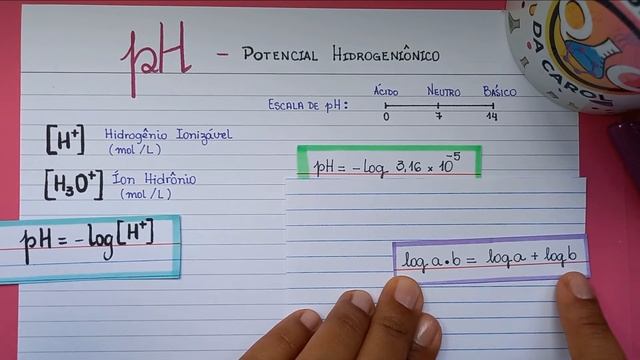 pH - Potencial Hidrogeniônico
Escala de pH: Ácido Neutro Básico
0 7 14
[H⁺] Hidrogênio Ionizável
(mol/L)
[H₃O⁺] Íon Hidrônio
(mol/L)
pH = -log[H⁺]
pH = -log 3,16 × 10⁻⁵
log a•b = log a + log b
DA CAROL